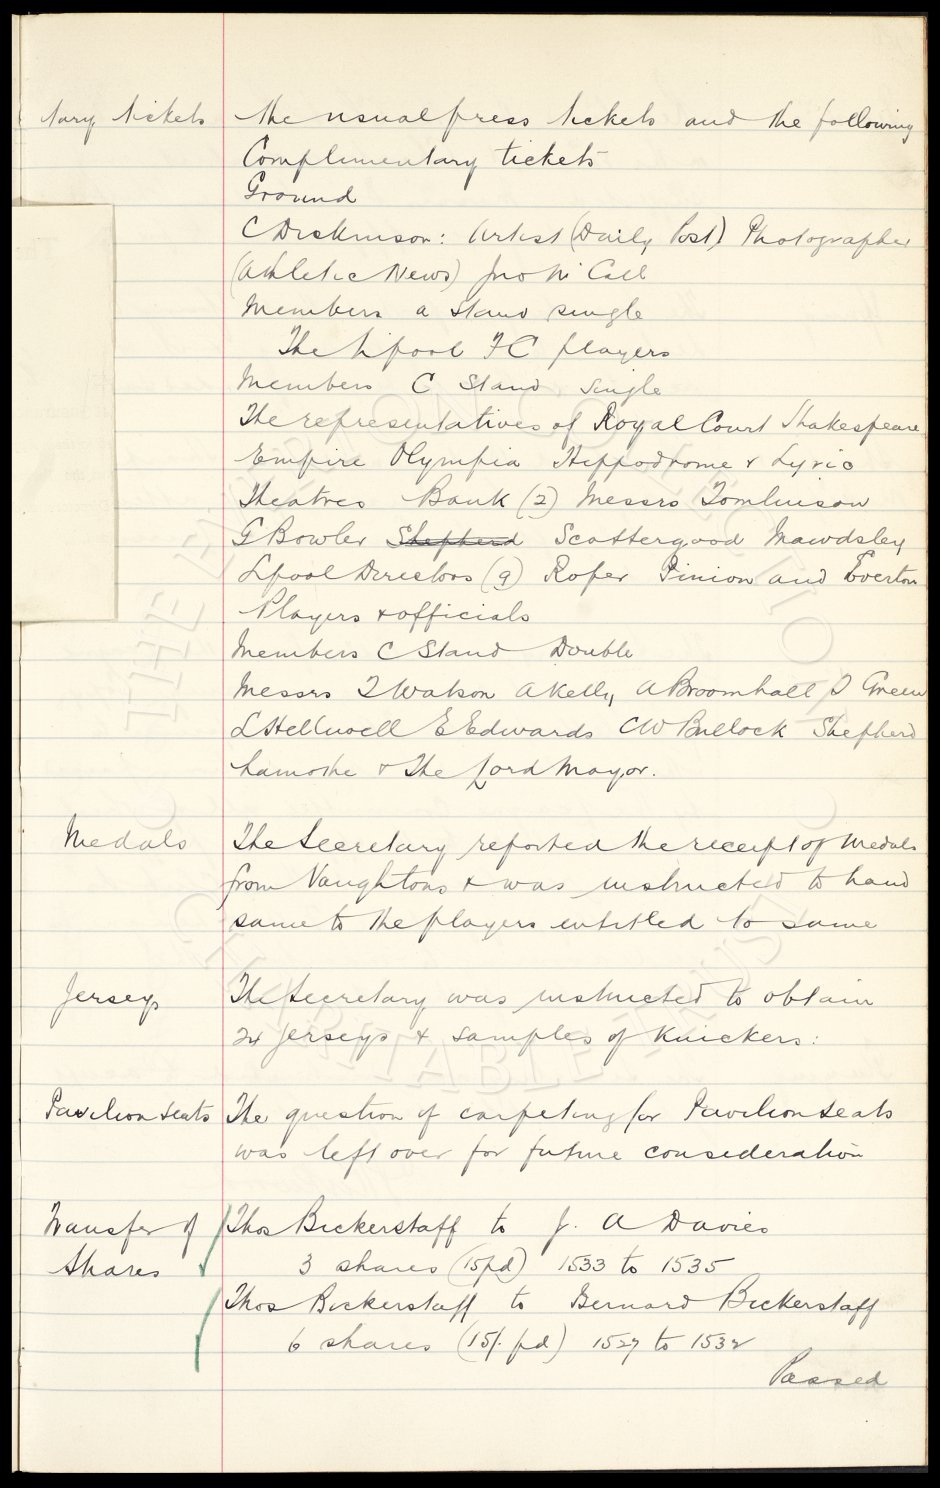 tary tickets the usual press tickets and the following
Complimentary tickets
Ground
C Dickinson: Artist (Daily Post) Photographer
(Athletic News) Jno McCall
Members A Stand single
The Lpool FC players
Members C Stand Single
The representatives of Royal Court Shakespeare
Empire Olympia Hippodrome & Lyric
Theatres Bank (2) Messrs Tomlinson
G Bowler Shepherd Scattergood Mawdsley
Lpool Directors (9) Roper Pinion and Everton
Players & officials
Members C Stand Double
Messrs T Watson A Kelly A Broomhall Green
L Helliwell E Edwards C W Bullock Shepherd
& The Lord Mayor.
Medals The Secretary reported the receipt of Medals
from Vaughtons & was instructed to hand
same to the players entitled to same
Jerseys The Secretary was instructed to obtain
24 Jerseys & samples of Knickers:
Pavilion Seats The question of carpeting for Pavilion Seats
was left over for future consideration
Transfer of Thos Bickerstaff to J. A Davies
Shares 3 shares (15 pd) 1533 to 1535
Thos Bickerstaff to Bernard Bickerstaff
6 shares (15/. pd) 1527 to 1532
Passed
THE EVERTON COLLECTION
CHARITABLE TRUST